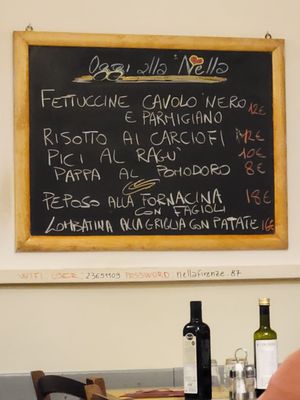 Oggi alla Nella
FETTUCCINE CAVOLO NERO
E PARMIGIANO 12€
RISOTTO AI CARCIOFI 12€
PICI AL RAGU' 10€
PAPPA AL POMODORO 8€
PEPOSO ALLA FORNACINA 18€
CON FAGIOLI
LOMBATINA ALLA GRIGLIA CON PATATE 16€
WIFI USER 23651109 PASSWORD nellafirenze.87